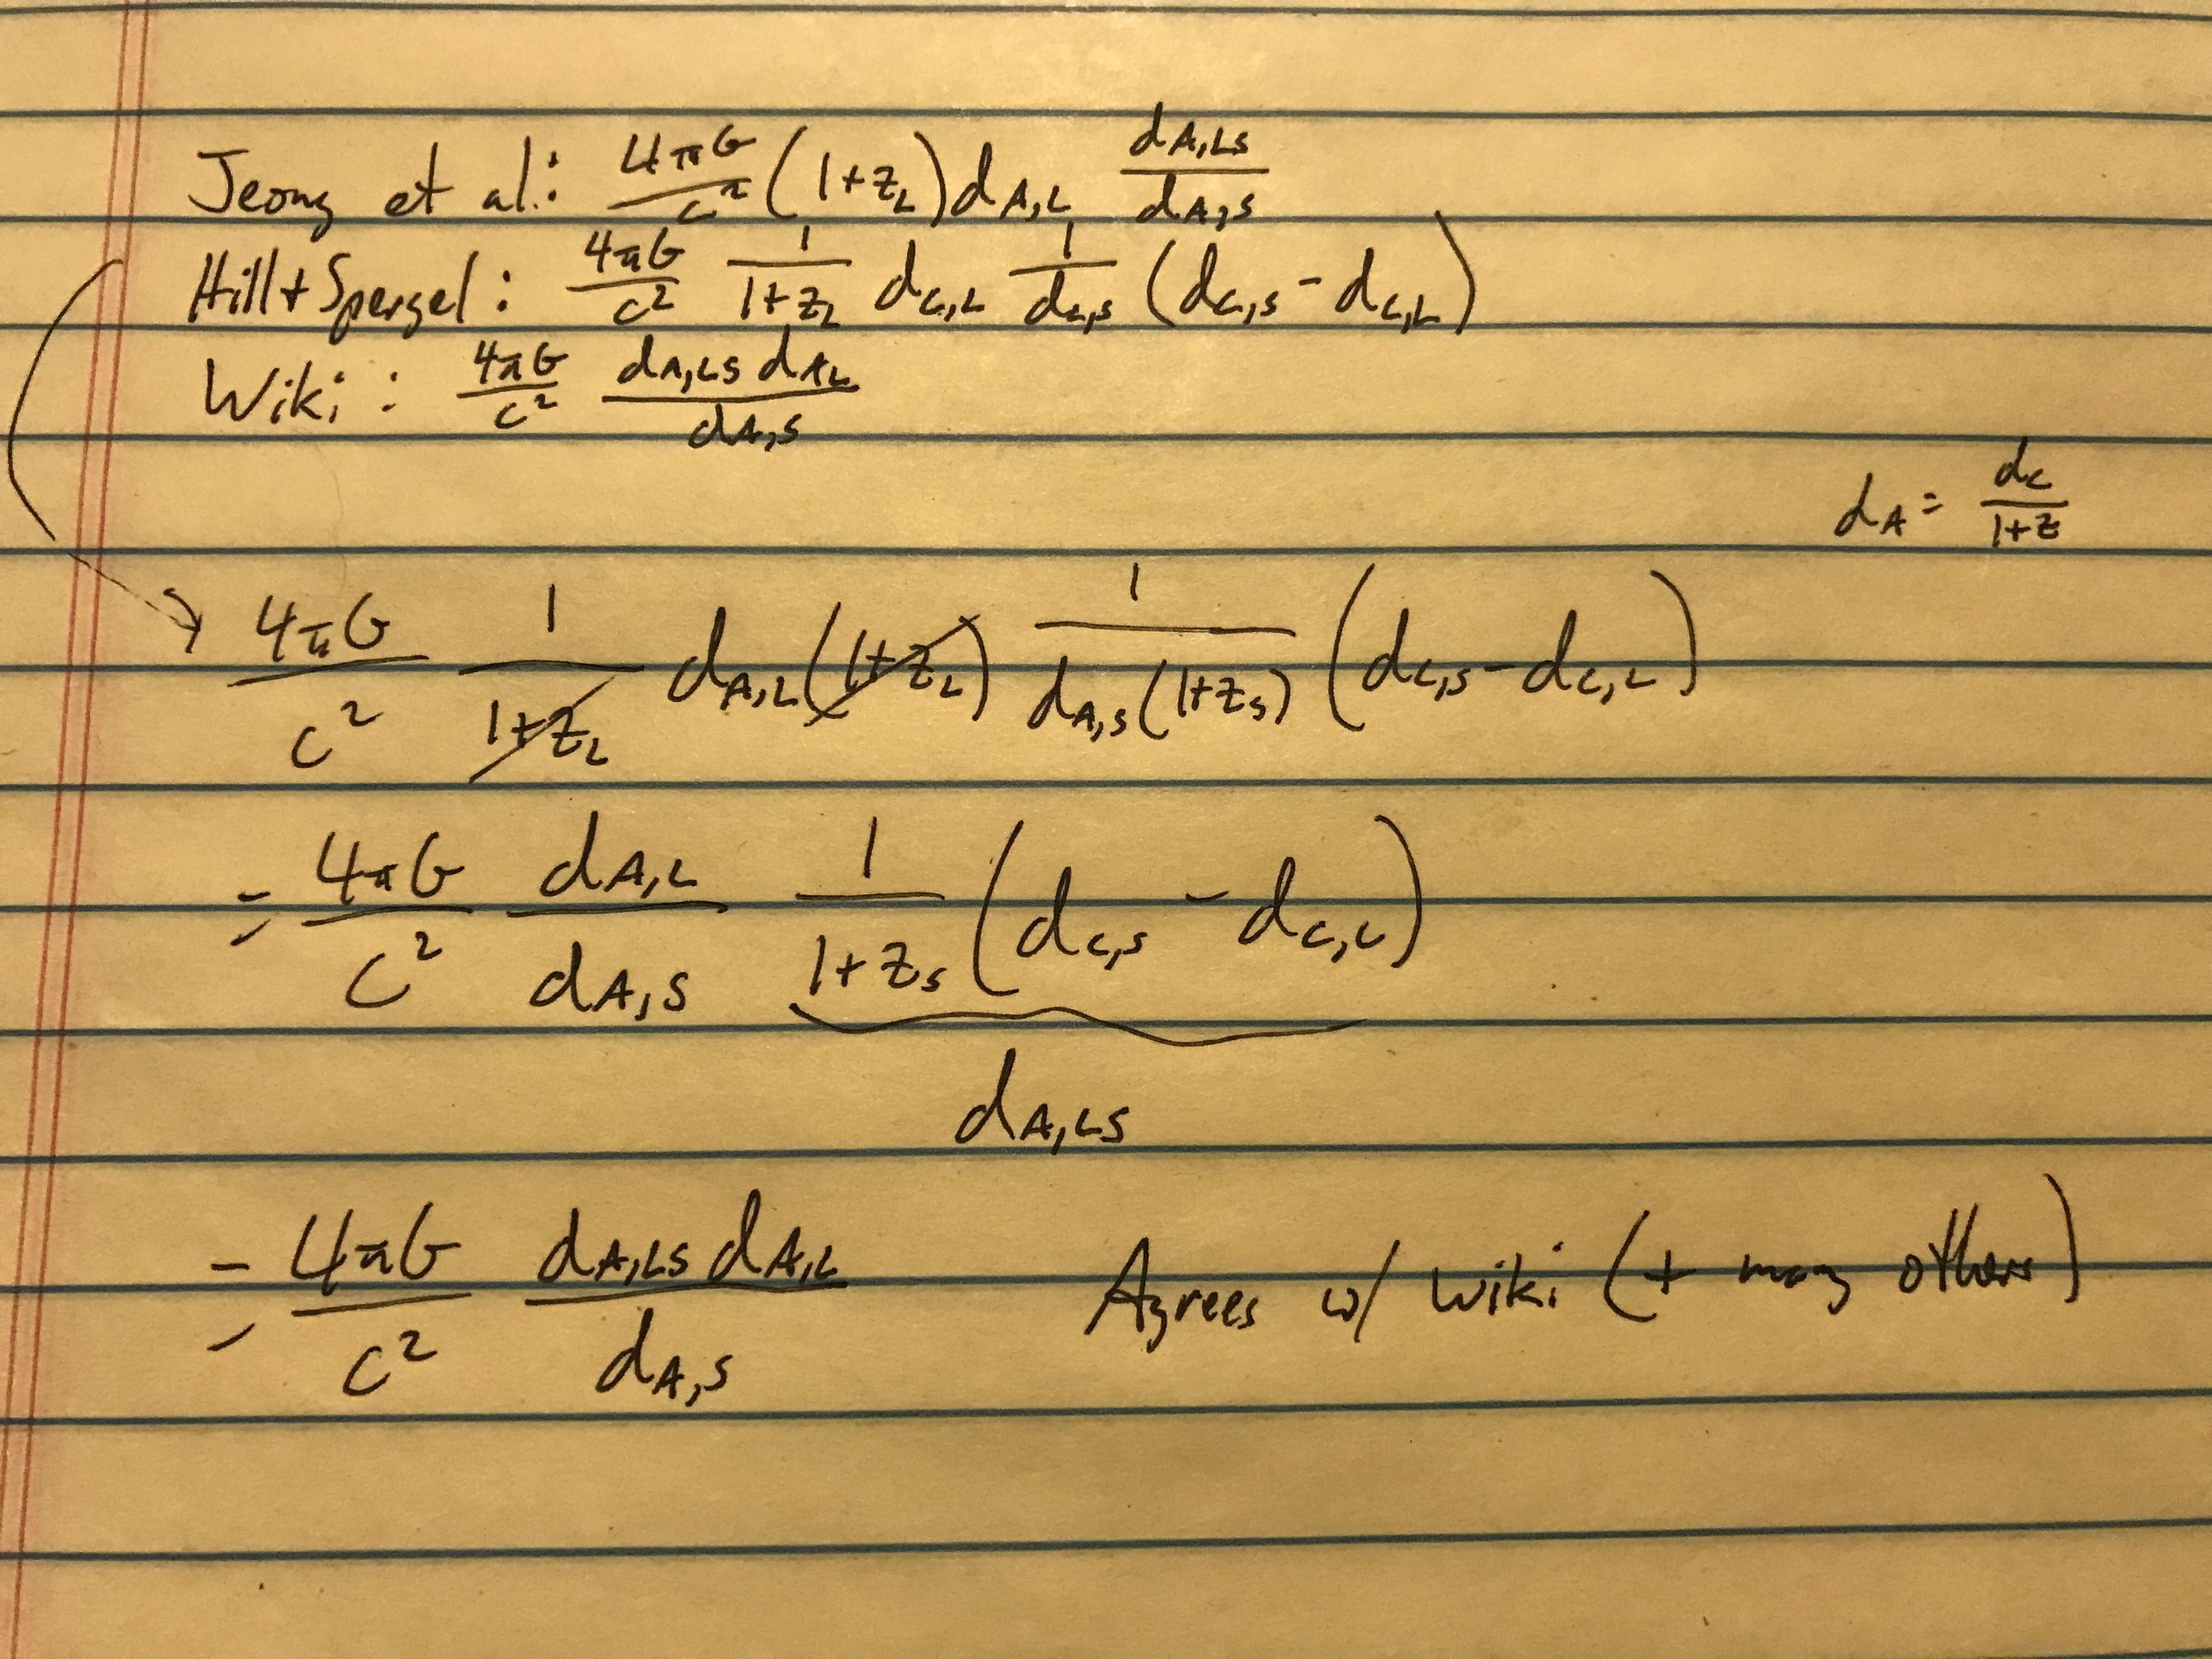 Jeong et al.: 4πG/c² (1+z_L) d_A,L d_A,LS/d_A,S
Hill+Spergel: 4πG/c² 1/(1+z_L) d_C,L 1/d_C,S (d_C,S - d_C,L)
Wiki: 4πG/c² d_A,LS d_A,L/d_A,S
d_A = d_C/(1+z)
→ 4πG/c² 1/(1+z_L) d_A,L(1+z_L) 1/(d_A,S(1+z_S)) (d_C,S - d_C,L)
= 4πG/c² d_A,L/d_A,S 1/(1+z_S) (d_C,S - d_C,L)
d_A,LS
= 4πG/c² d_A,LS d_A,L/d_A,S Agrees w/ Wiki (+ many others)